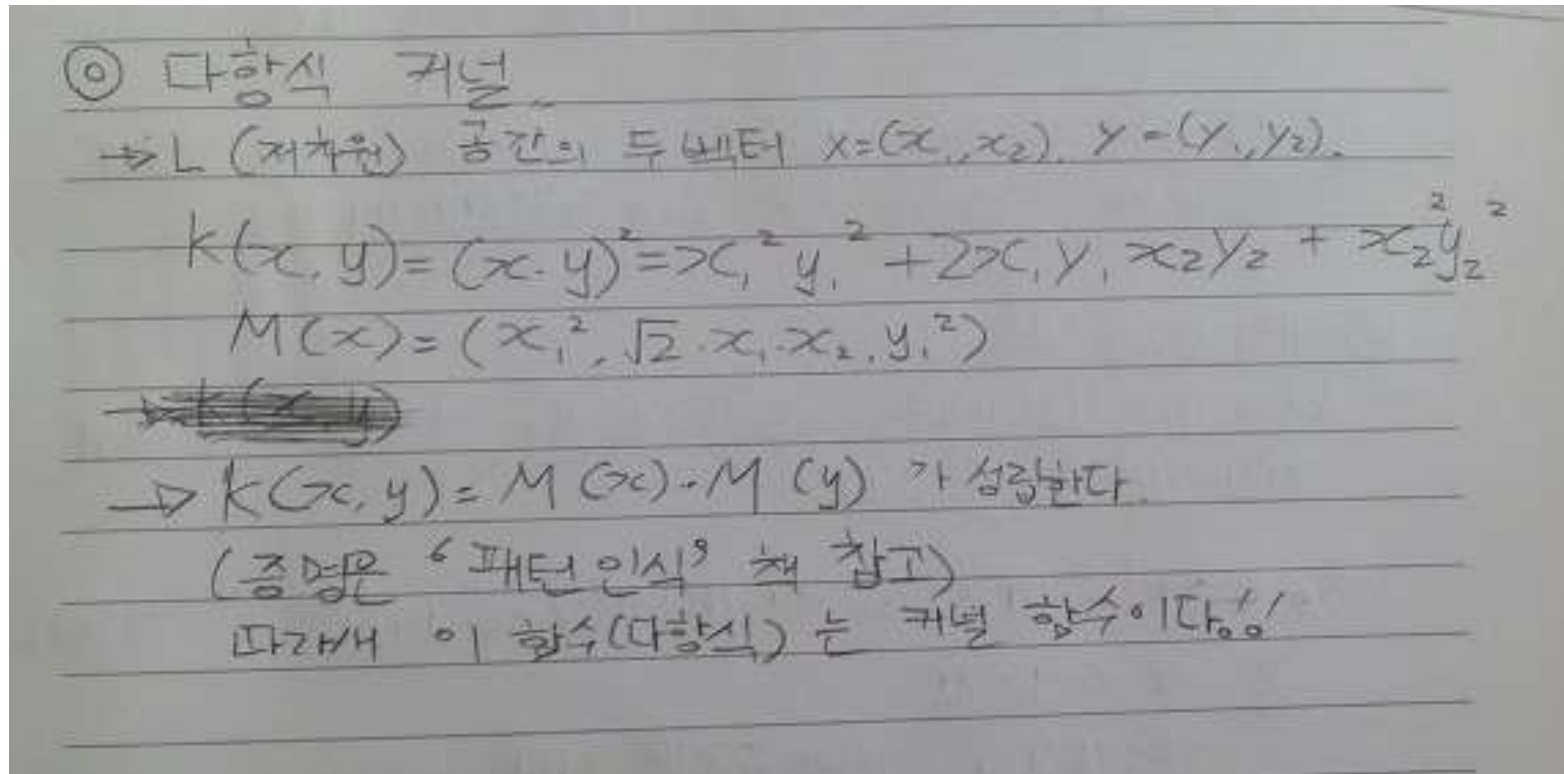 ◎ 다항식 커널
→ L (저차원) 공간의 두 벡터 x=(x₁,x₂), y=(y₁,y₂).
k(x,y)=(x·y)²=x₁²y₁²+2x₁y₁x₂y₂+x₂²y₂²
M(x)=(x₁²,√2·x₁·x₂,y₁²)
→ k(x,y)
→ k(x,y)=M(x)·M(y) 가 성립한다.
(증명은 '패턴인식' 책 참고)
따라서 이 함수(다항식)는 커널 함수이다!!